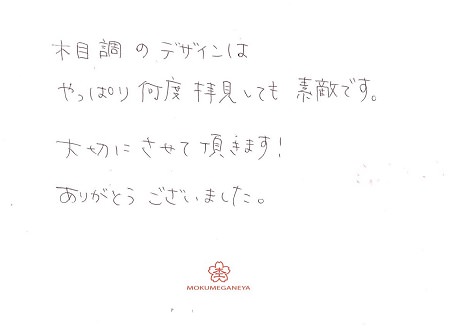 木目調のデザインは
やっぱり何度拝見しても素敵です。
大切にさせて頂きます!
ありがとうございました。
MOKUMEGANEYA